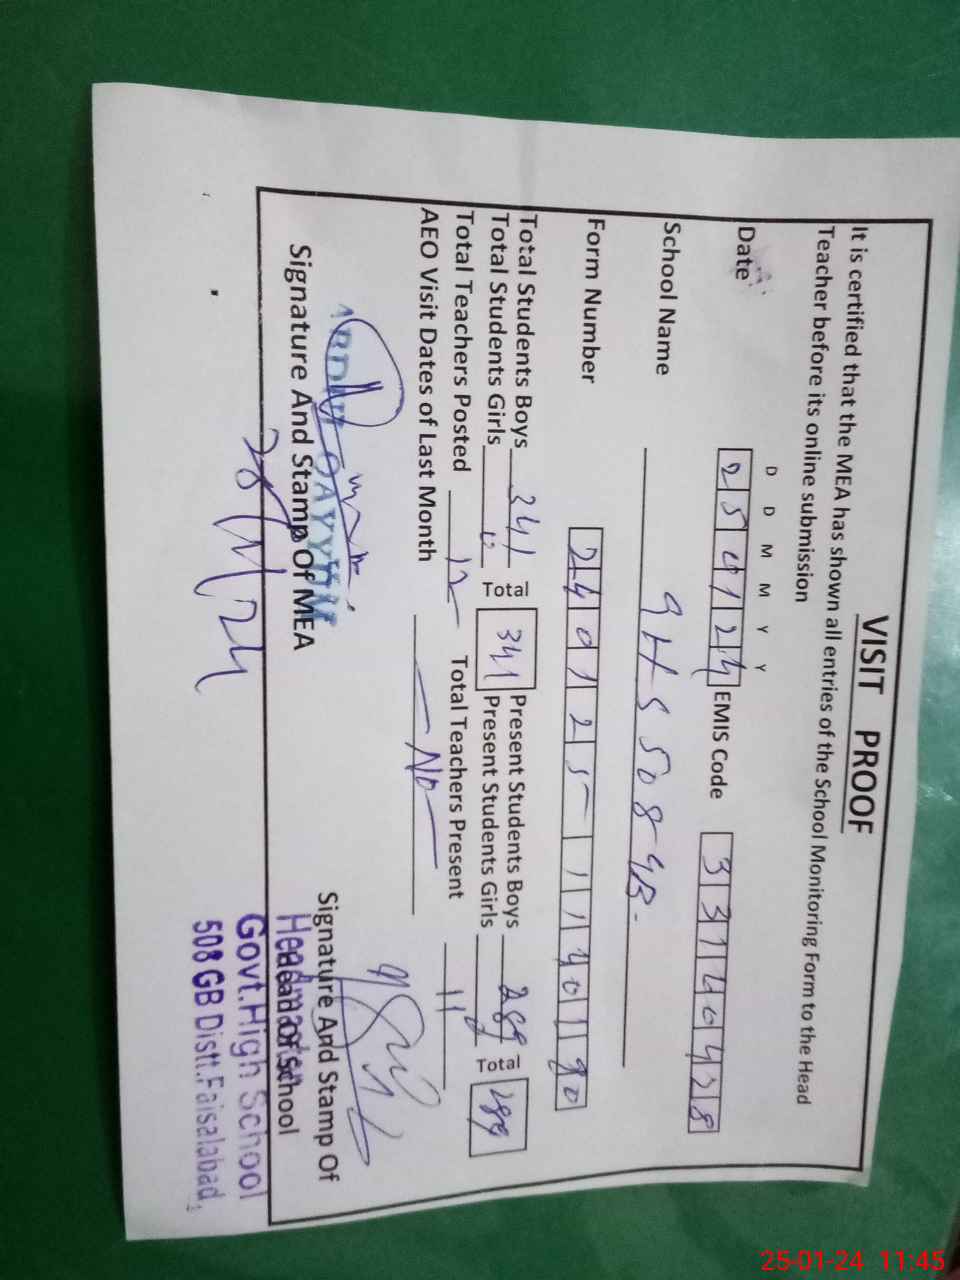 VISIT PROOF
It is certified that the MEA has shown all entries of the School Monitoring Form to the Head
Teacher before its online submission
D D M M Y Y
Date 250124 EMIS Code 33140428
School Name GHS 508 GB.
Form Number 24012511140190
Total Students Boys 341 Total 341 Present Students Boys 289 Total 289
Total Students Girls Present Students Girls
Total Teachers Posted 12 Total Teachers Present 11
AEO Visit Dates of Last Month - No -
ABDUL QAYYUM
Signature And Stamp Of MEA
Signature And Stamp Of
Head of School
Headmaster
Govt.High School
508 GB Distt.Faisalabad.
25-01-24 11:45